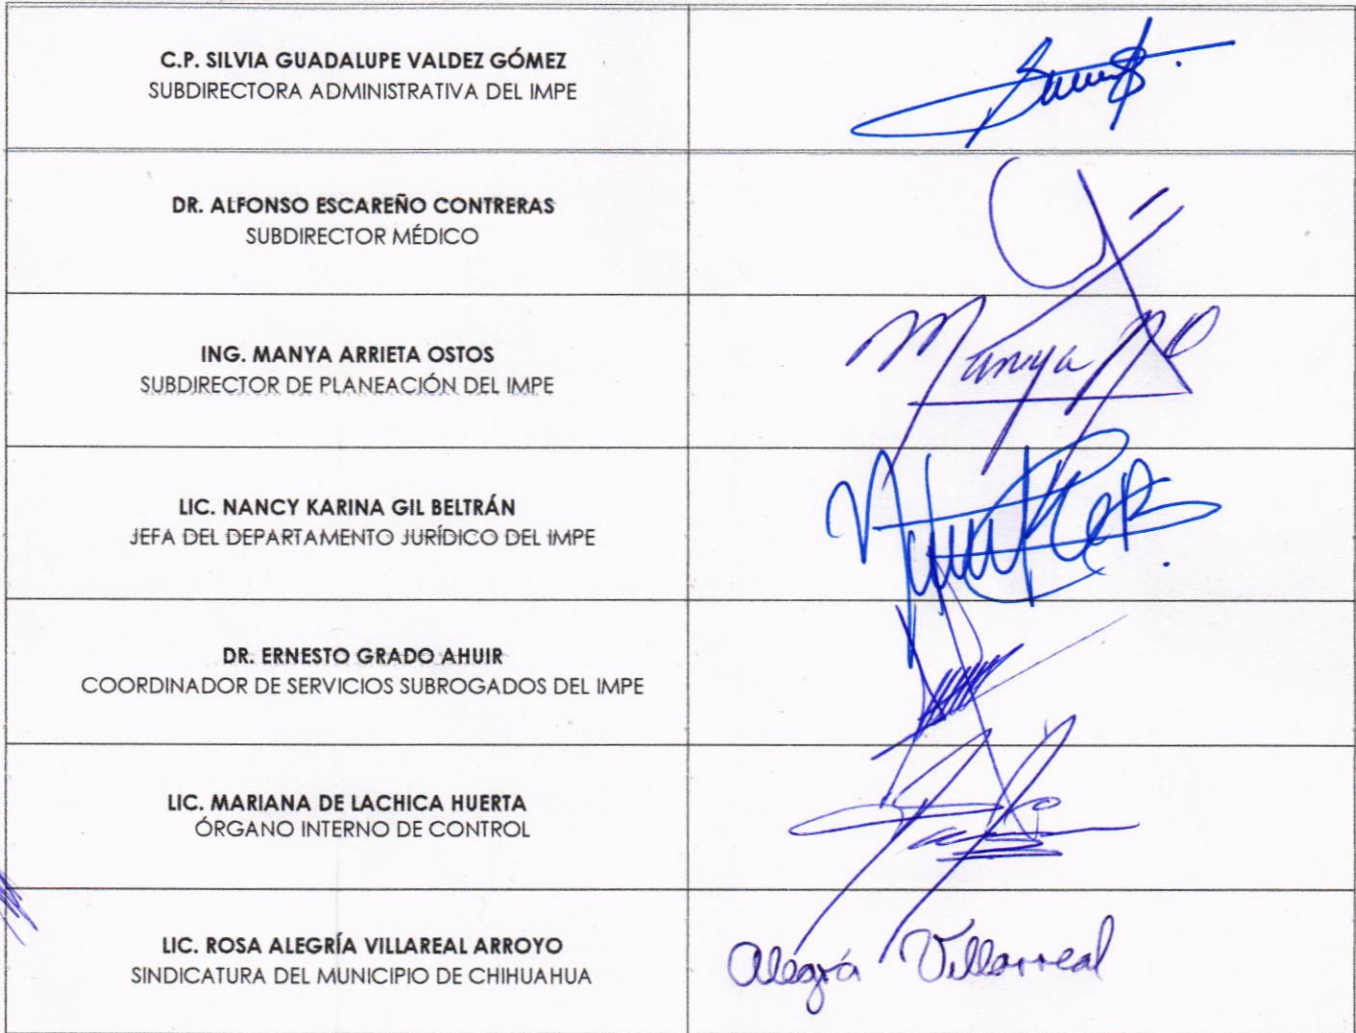 C.P. SILVIA GUADALUPE VALDEZ GÓMEZ
SUBDIRECTORA ADMINISTRATIVA DEL IMPE
DR. ALFONSO ESCAREÑO CONTRERAS
SUBDIRECTOR MÉDICO
ING. MANYA ARRIETA OSTOS
SUBDIRECTOR DE PLANEACIÓN DEL IMPE
Manya
LIC. NANCY KARINA GIL BELTRÁN
JEFA DEL DEPARTAMENTO JURÍDICO DEL IMPE
DR. ERNESTO GRADO AHUIR
COORDINADOR DE SERVICIOS SUBROGADOS DEL IMPE
LIC. MARIANA DE LACHICA HUERTA
ÓRGANO INTERNO DE CONTROL
LIC. ROSA ALEGRÍA VILLAREAL ARROYO
SINDICATURA DEL MUNICIPIO DE CHIHUAHUA
Alegría Villarreal